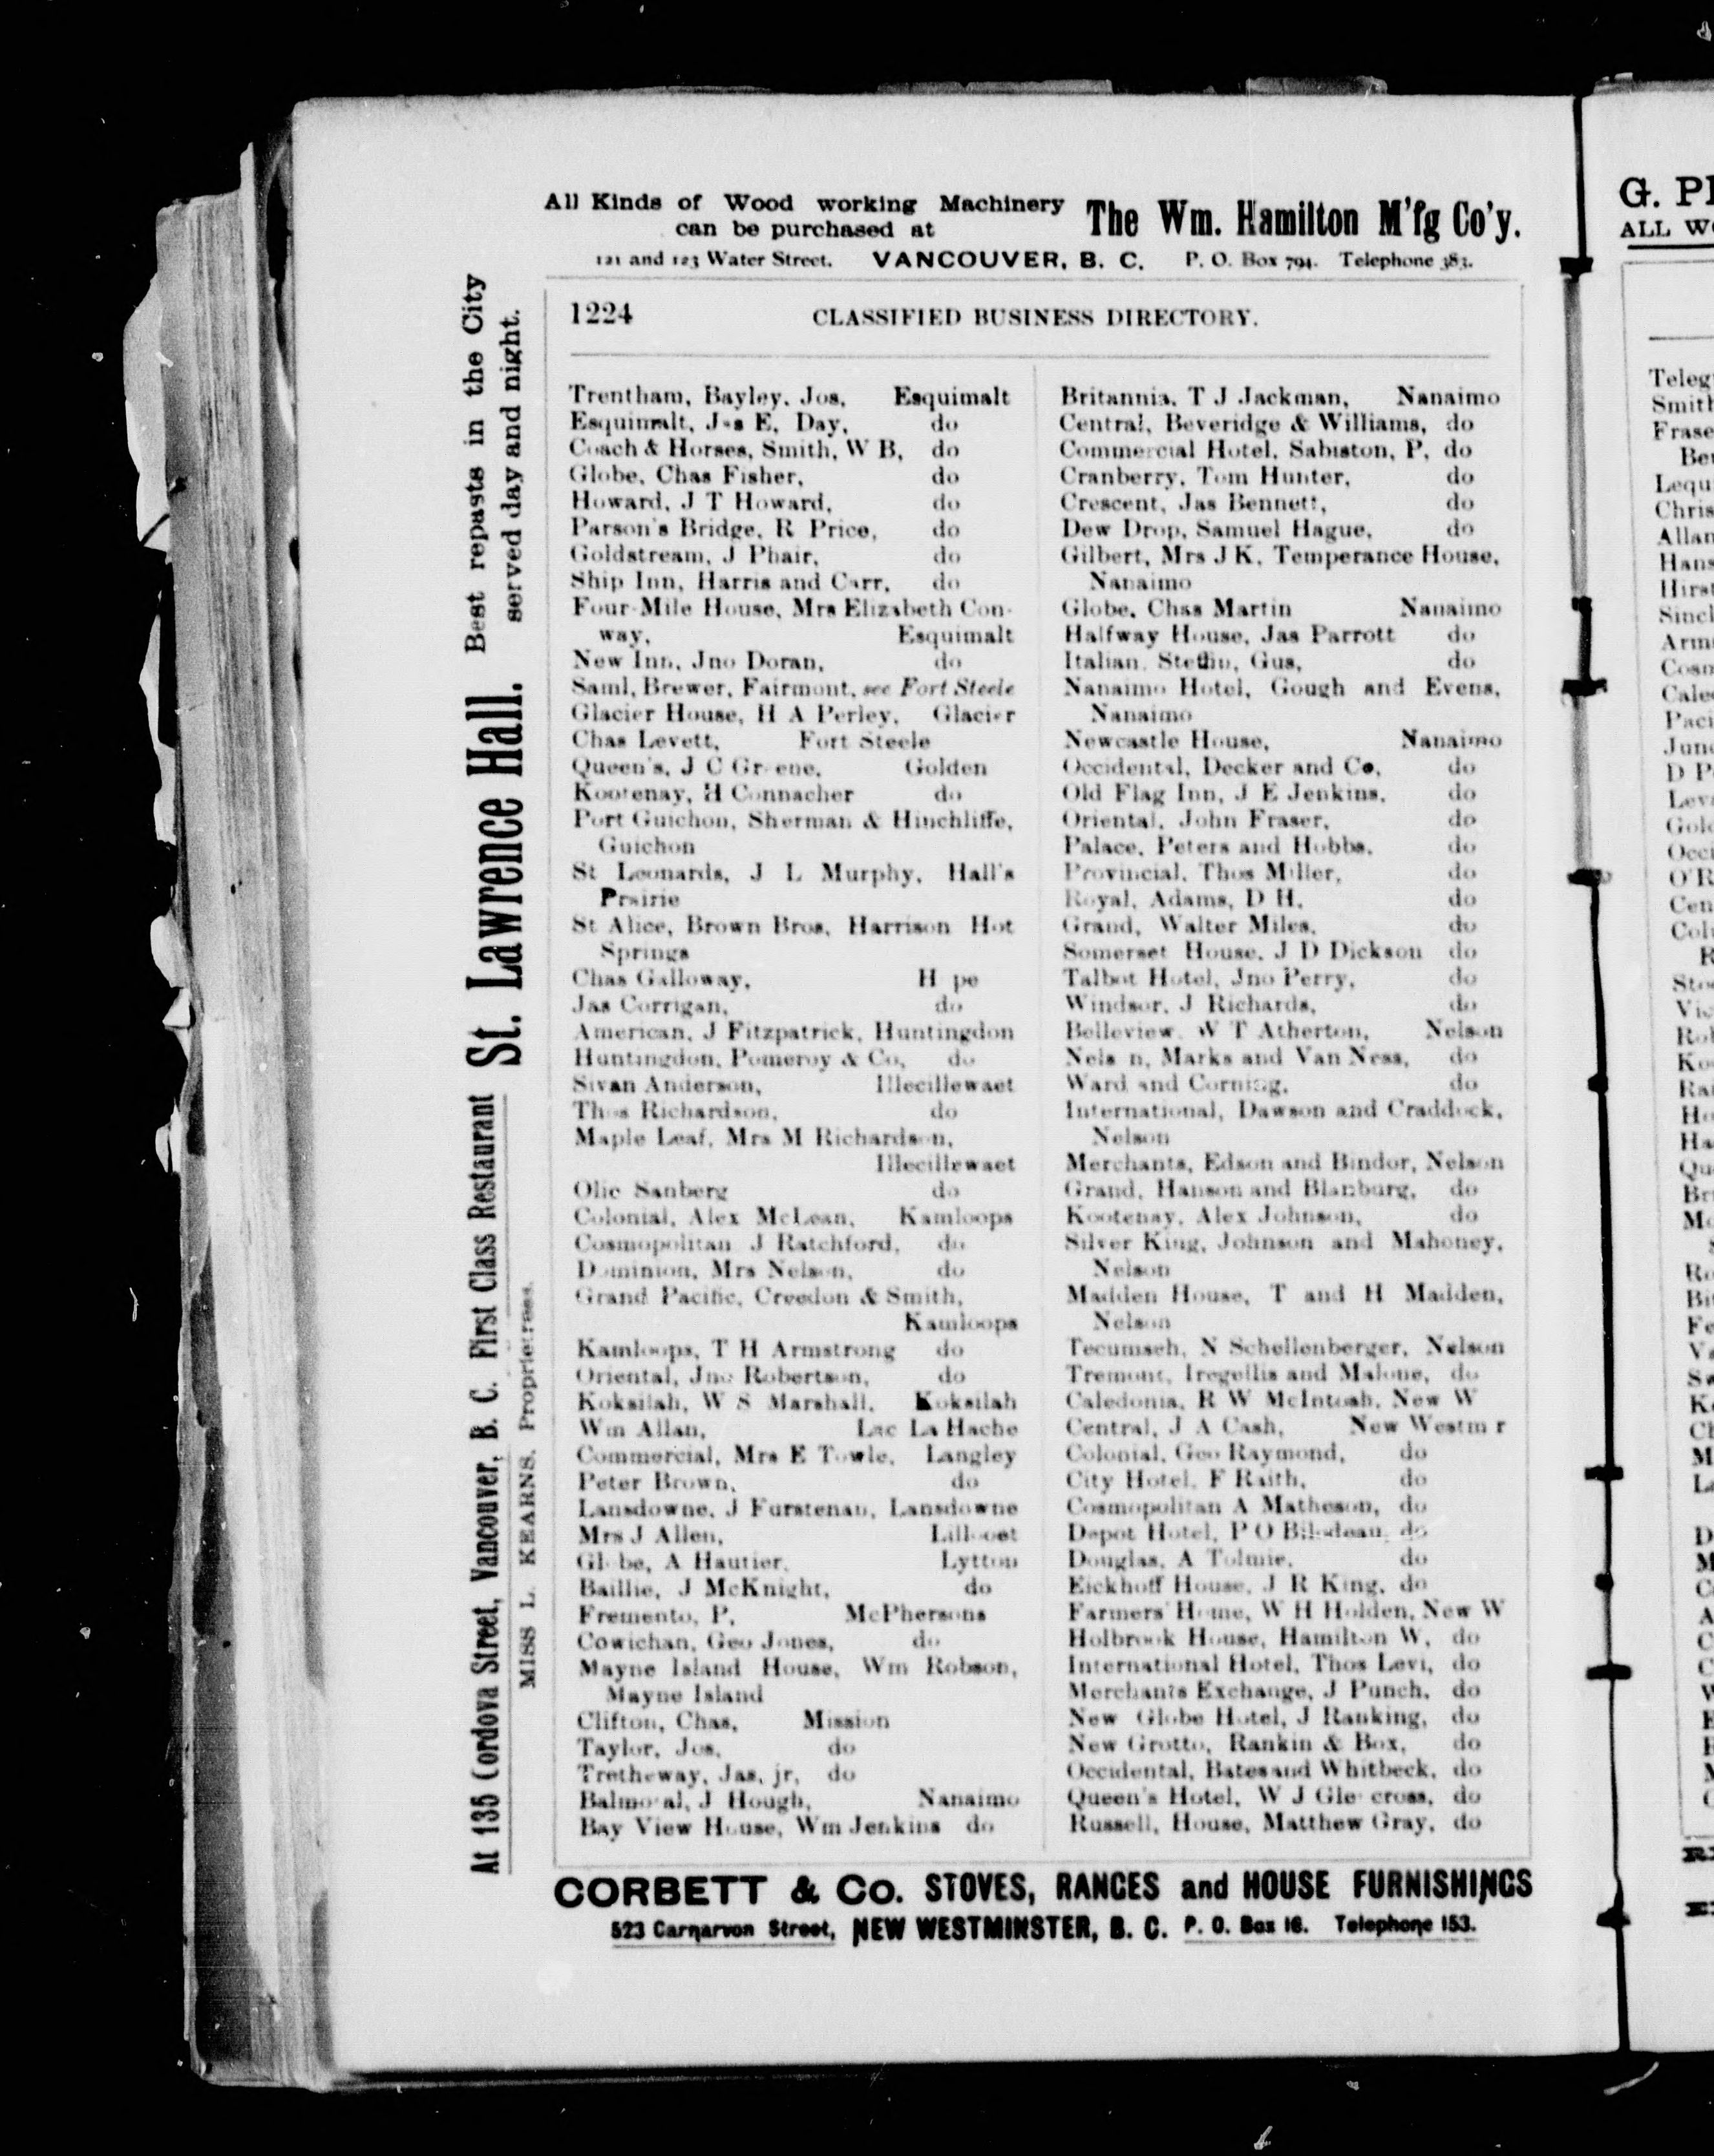 All Kinds of Wood working Machinery
can be purchased at
The Wm. Hamilton M'fg Co'y.
121 and 123 Water Street. VANCOUVER, B. C. P. O. Box 794. Telephone 383.
1224 CLASSIFIED BUSINESS DIRECTORY.
Trentham, Bayley, Jos, Esquimalt
Esquimalt, Jas E, Day, do
Coach & Horses, Smith, W B, do
Globe, Chas Fisher, do
Howard, J T Howard, do
Parson's Bridge, R Price, do
Goldstream, J Phair, do
Ship Inn, Harris and Carr, do
Four-Mile House, Mrs Elizabeth Con-
way, Esquimalt
New Inn, Jno Doran, do
Saml, Brewer, Fairmont, see Fort Steele
Glacier House, H A Perley, Glacier
Chas Levett, Fort Steele
Queen's, J C Greene, Golden
Kootenay, H Connacher do
Port Guichon, Sherman & Hinchliffe,
Guichon
St Leonards, J L Murphy, Hall's
Prairie
St Alice, Brown Bros, Harrison Hot
Springs
Chas Galloway, H pe
Jas Corrigan, do
American, J Fitzpatrick, Huntingdon
Huntingdon, Pomeroy & Co, do
Sivan Anderson, Illecillewaet
Thos Richardson, do
Maple Leaf, Mrs M Richardson,
Illecillewaet
Olie Sanberg do
Colonial, Alex McLean, Kamloops
Cosmopolitan J Ratchford, do
Dominion, Mrs Nelson, do
Grand Pacific, Creedon & Smith,
Kamloops
Kamloops, T H Armstrong do
Oriental, Jno Robertson, do
Koksilah, W S Marshall, Koksilah
Wm Allan, Lac La Hache
Commercial, Mrs E Towle, Langley
Peter Brown, do
Lansdowne, J Furstenau, Lansdowne
Mrs J Allen, Lillooet
Globe, A Hautier, Lytton
Baillie, J McKnight, do
Fremento, P, McPhersons
Cowichan, Geo Jones, do
Mayne Island House, Wm Robson,
Mayne Island
Clifton, Chas, Mission
Taylor, Jos, do
Tretheway, Jas, jr, do
Balmoral, J Hough, Nanaimo
Bay View House, Wm Jenkins do
Britannia, T J Jackman, Nanaimo
Central, Beveridge & Williams, do
Commercial Hotel, Sabiston, P, do
Cranberry, Tom Hunter, do
Crescent, Jas Bennett, do
Dew Drop, Samuel Hague, do
Gilbert, Mrs J K, Temperance House,
Nanaimo
Globe, Chas Martin Nanaimo
Halfway House, Jas Parrott do
Italian, Steffin, Gus, do
Nanaimo Hotel, Gough and Evens,
Nanaimo
Newcastle House, Nanaimo
Occidental, Decker and Co, do
Old Flag Inn, J E Jenkins, do
Oriental, John Fraser, do
Palace, Peters and Hobbs, do
Provincial, Thos Miller, do
Royal, Adams, D H, do
Grand, Walter Miles, do
Somerset House, J D Dickson do
Talbot Hotel, Jno Perry, do
Windsor, J Richards, do
Belleview, W T Atherton, Nelson
Nels n, Marks and Van Ness, do
Ward and Corning, do
International, Dawson and Craddock,
Nelson
Merchants, Edson and Bindor, Nelson
Grand, Hanson and Blanburg, do
Kootenay, Alex Johnson, do
Silver King, Johnson and Mahoney,
Nelson
Madden House, T and H Madden,
Nelson
Tecumseh, N Schellenberger, Nelson
Tremont, Iregellis and Malone, do
Caledonia, R W McIntosh, New W
Central, J A Cash, New Westm r
Colonial, Geo Raymond, do
City Hotel, F Raith, do
Cosmopolitan A Matheson, do
Depot Hotel, P O Bilodeau, do
Douglas, A Tolmie, do
Eickhoff House, J R King, do
Farmers' Home, W H Holden, New W
Holbrook House, Hamilton W, do
International Hotel, Thos Levi, do
Merchants Exchange, J Punch, do
New Globe Hotel, J Ranking, do
New Grotto, Rankin & Box, do
Occidental, Bates and Whitbeck, do
Queen's Hotel, W J Gle cross, do
Russell, House, Matthew Gray, do
CORBETT & Co. STOVES, RANGES and HOUSE FURNISHINGS
523 Carnarvon Street, NEW WESTMINSTER, B. C. P. O. Box 16. Telephone 153.
At 135 Cordova Street, Vancouver, B. C. First Class Restaurant St. Lawrence Hall. Best repasts in the City
served day and night.
MISS L. KEARNS, Proprietress.
G. P
ALL W
Teleg
Smith
Frase
Be
Lequ
Chris
Allan
Hans
Hirst
Sincl
Arm
Cosm
Cale
Paci
June
D P
Lev
Gold
Occi
O'R
Cen
Col
R
Sto
Vic
Ro
Ko
Ra
Ho
Ha
Qu
Br
Mc
Ro
Bi
Fe